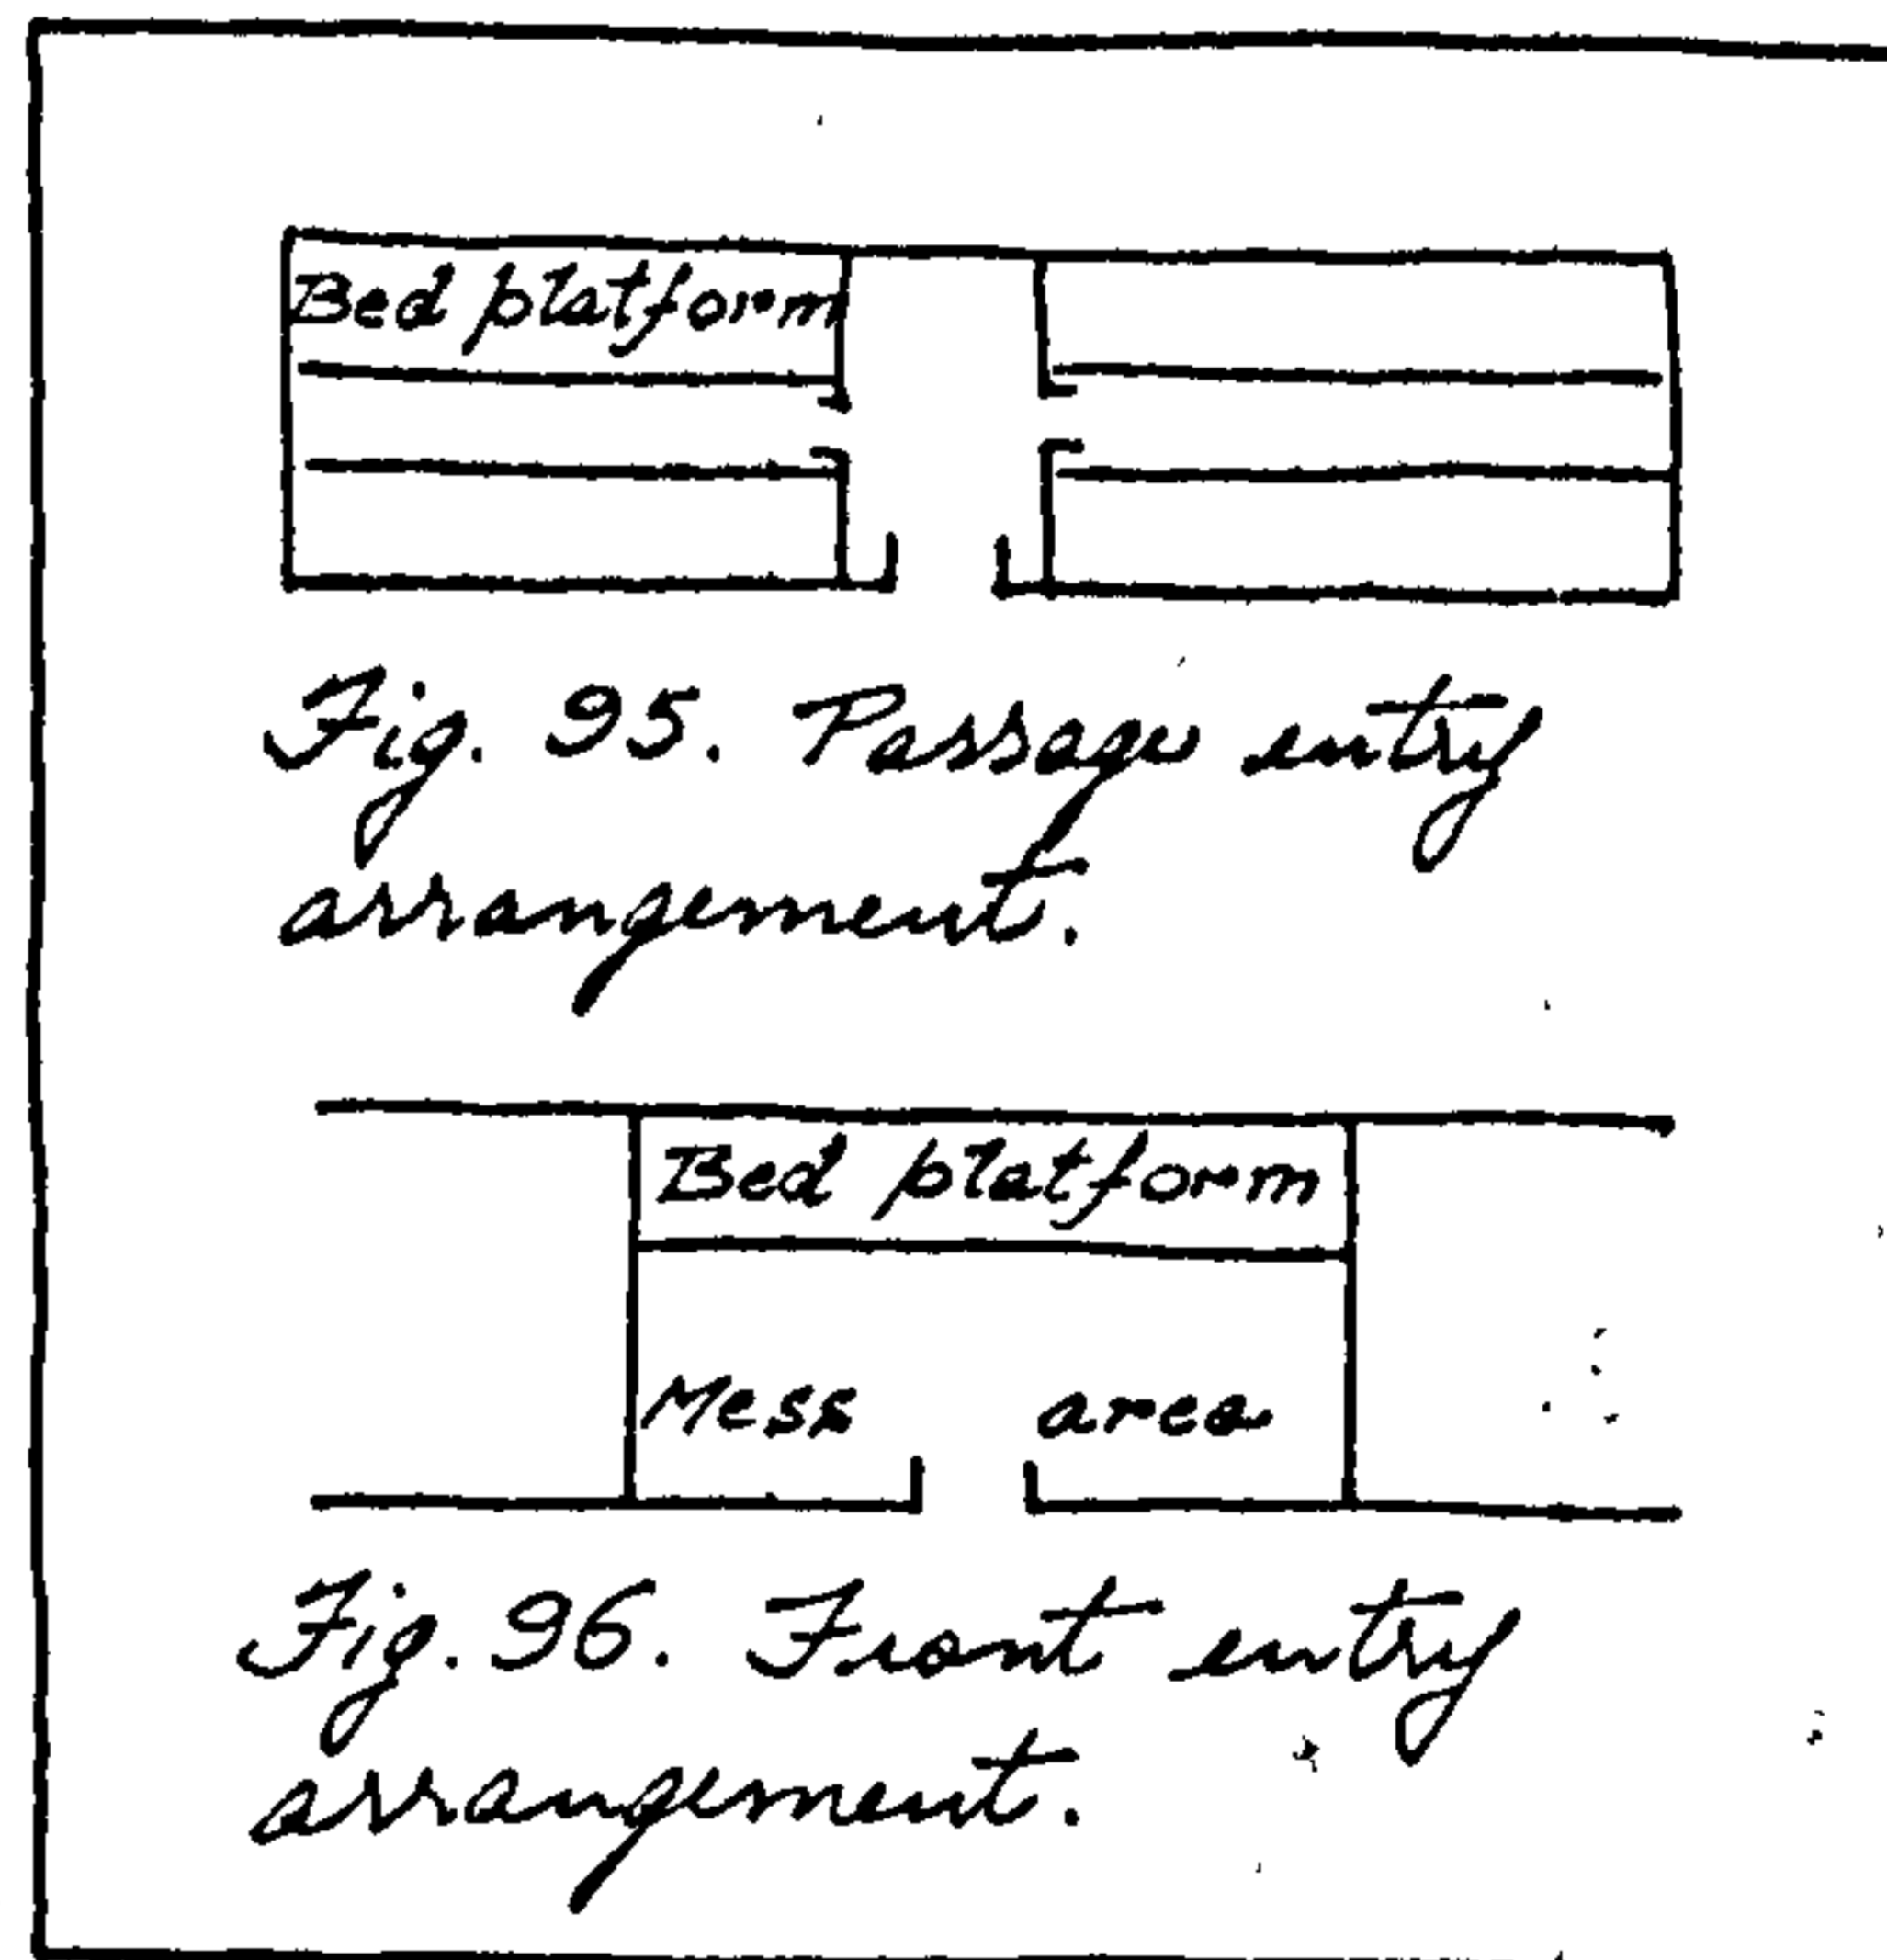 Bed platform
Fig. 95. Passage entry
arrangement.
Bed platform
Mess area
Fig. 96. Front entry
arrangement.